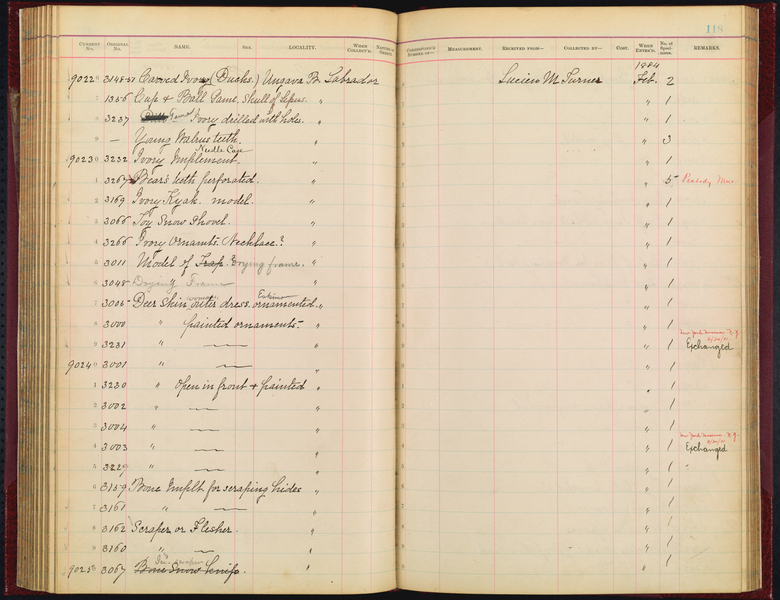 118
CURRENT No. ORIGINAL No. NAME. SEX. LOCALITY. WHEN COLLECT'D. NATURE OF OBJECT. CORRESPOND'G NUMBER OF— MEASUREMENT. RECEIVED FROM— COLLECTED BY— COST. WHEN ENTER'D. No. of Speci-mens. REMARKS.
1884
90228 Carved Ivory (Ducks.) Ungava B. Labrador Lucien M. Turner Feb. 2
7 1356 Cup & Ball Game. Skull of Lepus. " " 1
8 3237 Game Ivory drilled with holes. " " 1
9 — Young Walrus teeth. " 3
Needle Case
90230 3232 Ivory Implement. " " 1
1 3267 Bear's teeth perforated. " " 5 Peabody Mus
2 3169 Ivory Kyak. model. " " 1
3 3066 Toy Snow Shovel. " " 1
4 3266 Ivory Ornamts. Necklace? " " 1
5 3011 Model of Trap? Drying frame. " " 1
6 3048 Drying Frame " 1
woman's Eskimo
7 3005 Deer Skin outer dress. ornamented. " " 1
8 3000 " painted ornaments. " " 1
9 3231 " " " 1 Exchanged
90240 3001 " " " 1
1 3230 " Open in front & painted " " 1
2 3002 " " " 1
3 3004 " " " 1
4 3003 " " " 1 Exchanged
5 3229 " " " 1 "
6 3159 Bone Implt for scraping hides " " 1
7 3161 " " " 1
8 3162 Scraper or Flesher. " " 1
9 3160 " " " 1
90250 3067 Bone Snow Knife. " " 1